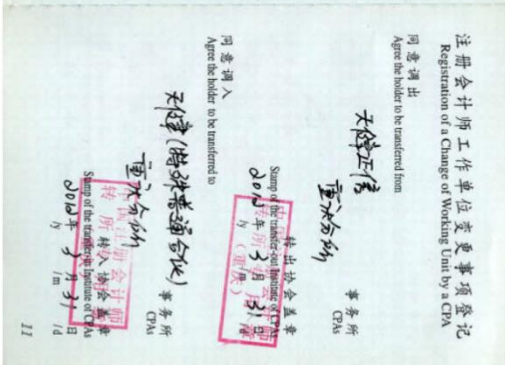 注册会计师工作单位变更事项登记
Registration of a Change of Working Unit by a CPA
同意调出
Agree the holder to be transferred from
天健正信
重庆分所
事务所
CPAs
转出协会盖章
Stamp of the transfer-out Institute of CPAs
2012年3月31日
/y
同意调入
Agree the holder to be transferred to
天健(特殊普通合伙)
重庆分所
事务所
CPAs
转入协会盖章
Stamp of the transfer-in Institute of CPAs
2012年3月31日
/y /m /d
11